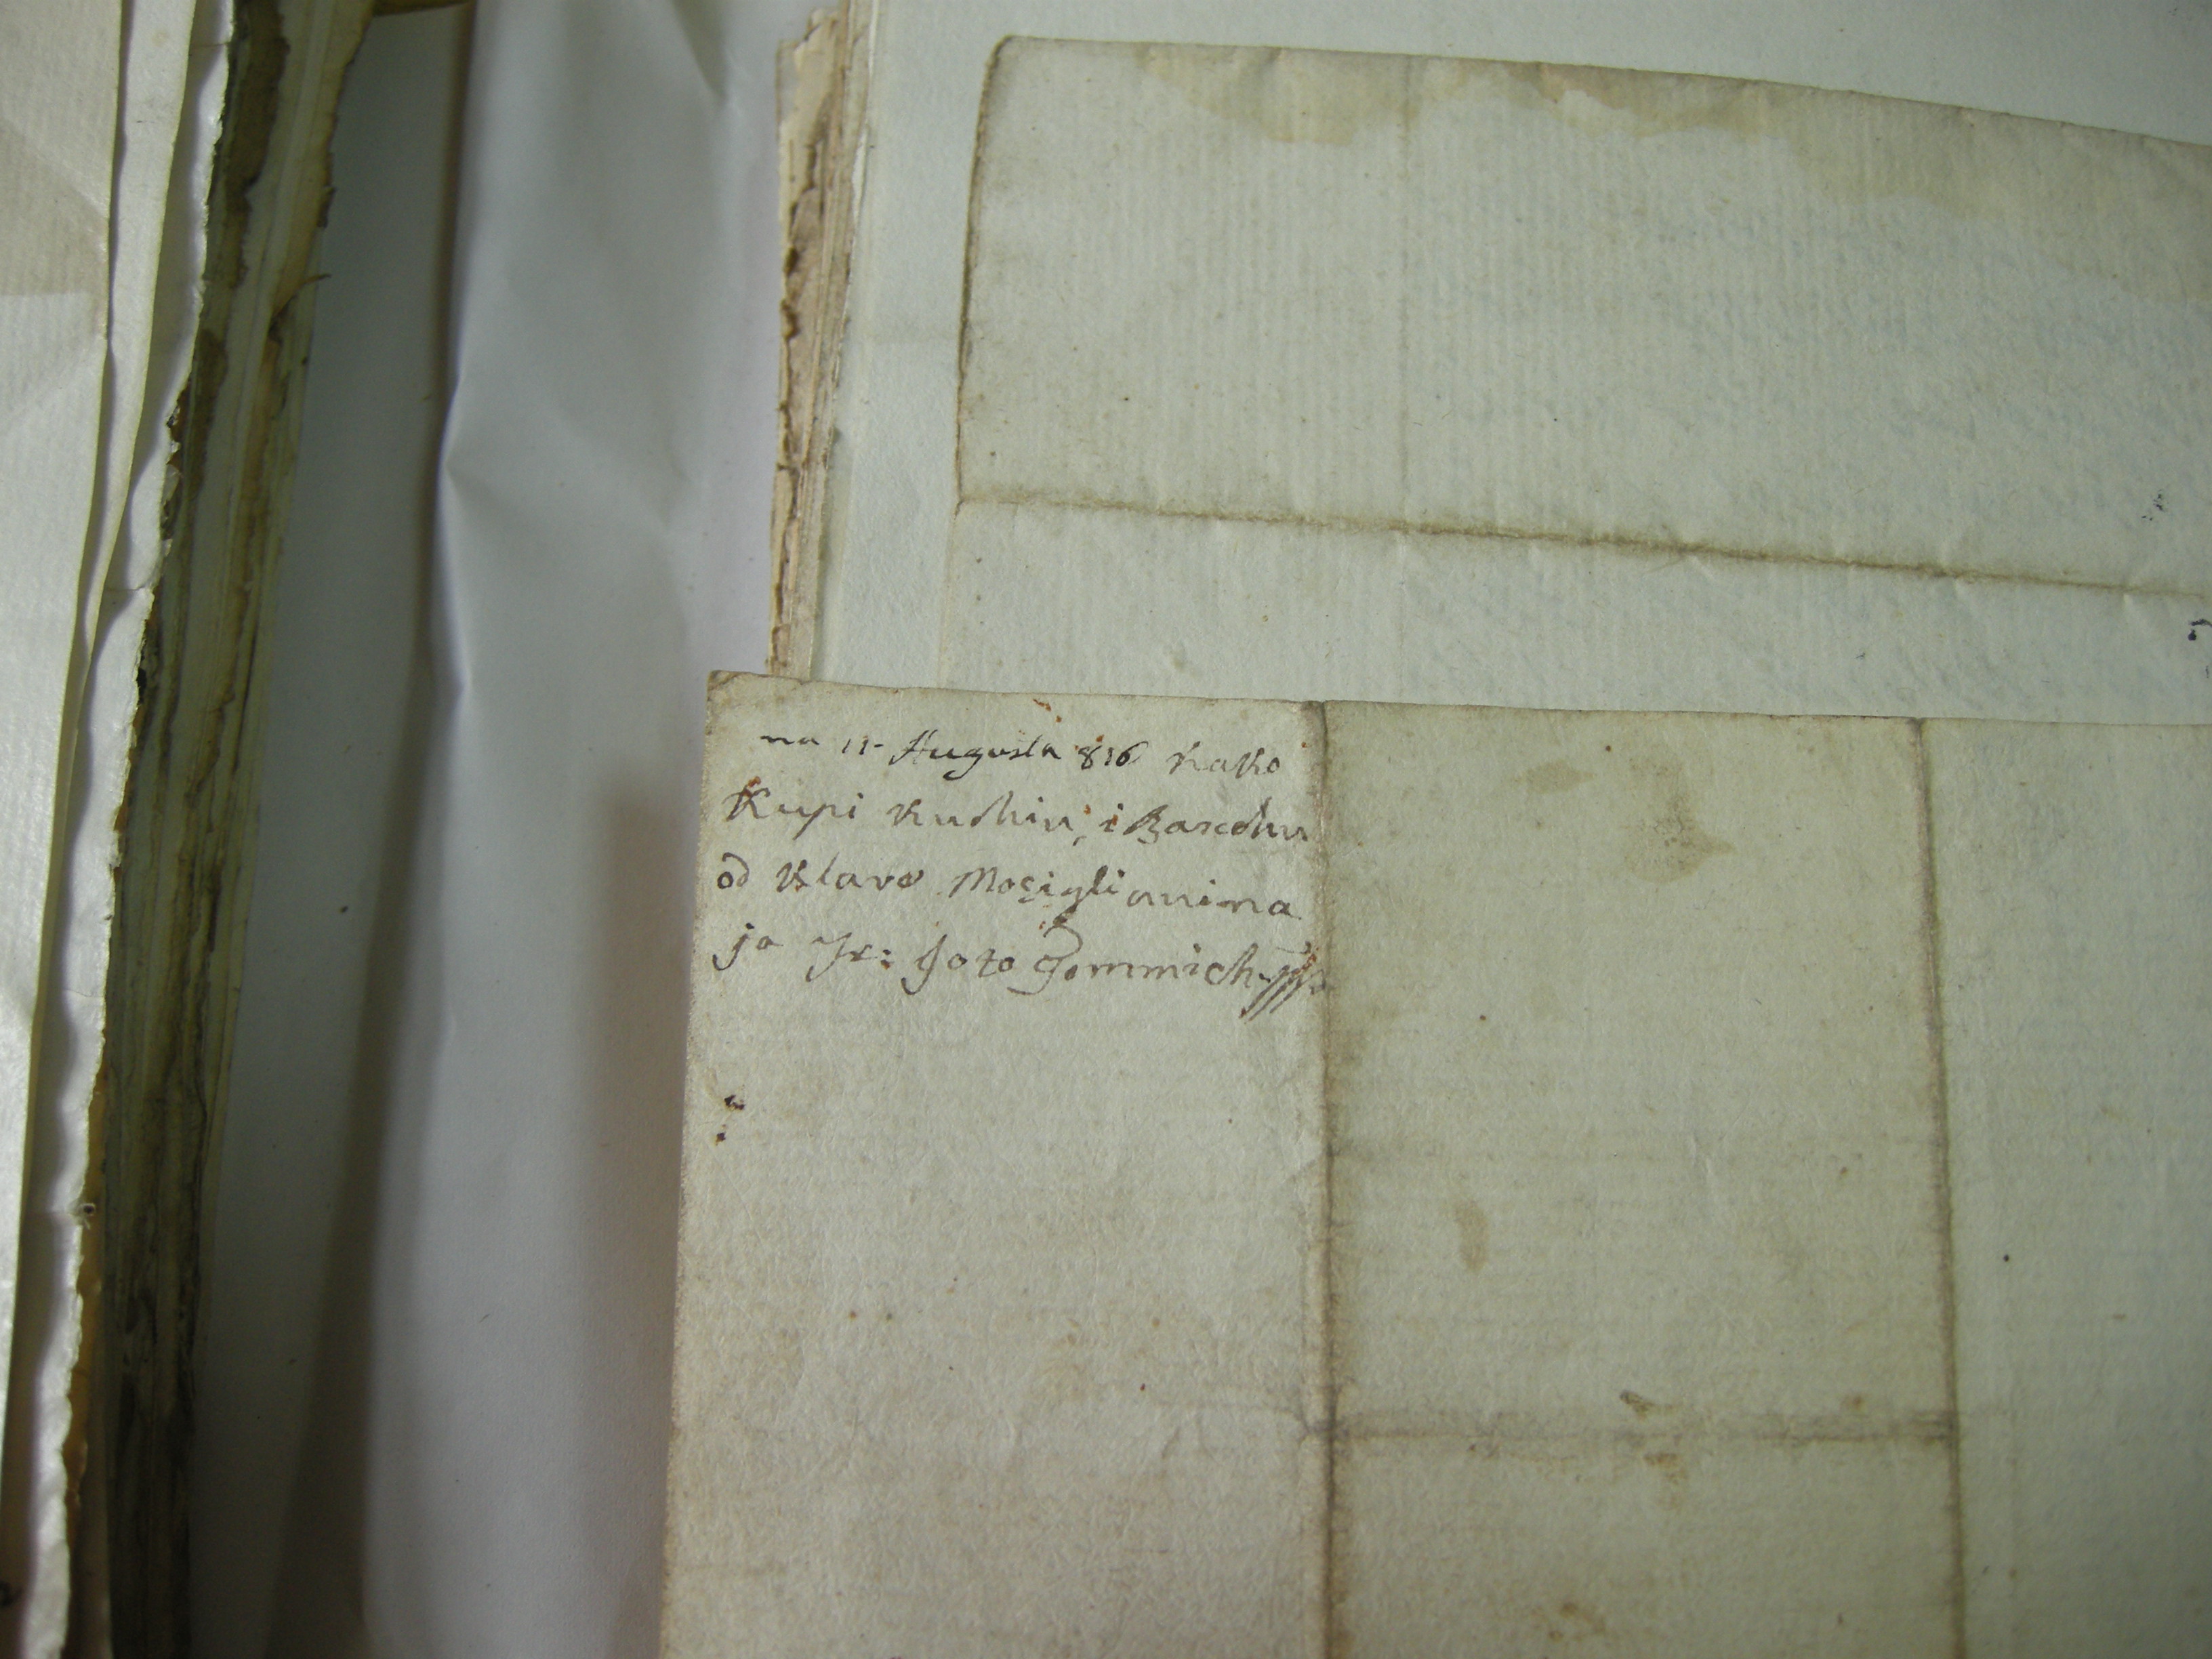 na 11- Augusta 816 kako
Kupi kuchiu, i Barchu
od klare Mosiglianina
ja Jv: Gozo Tommich